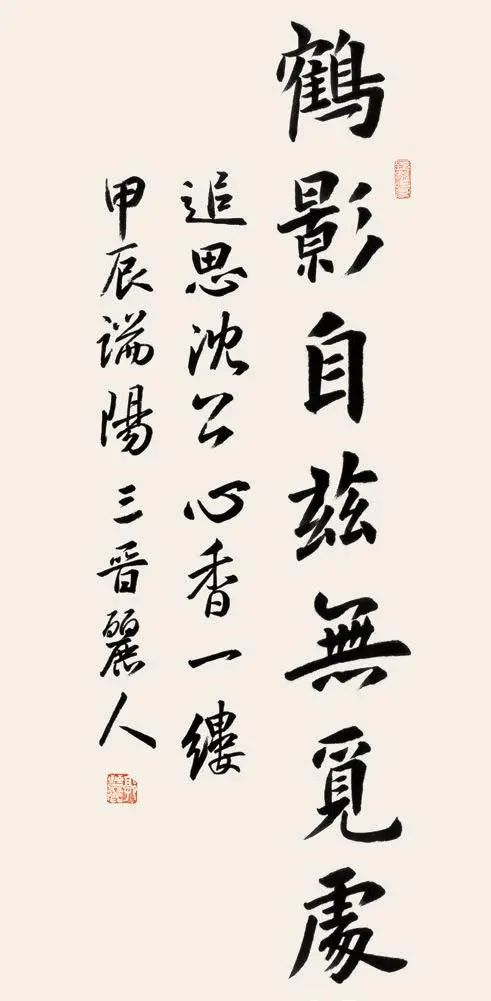 鶴影自茲無覓處
追思沈公心香一縷
甲辰端陽三晋麗人